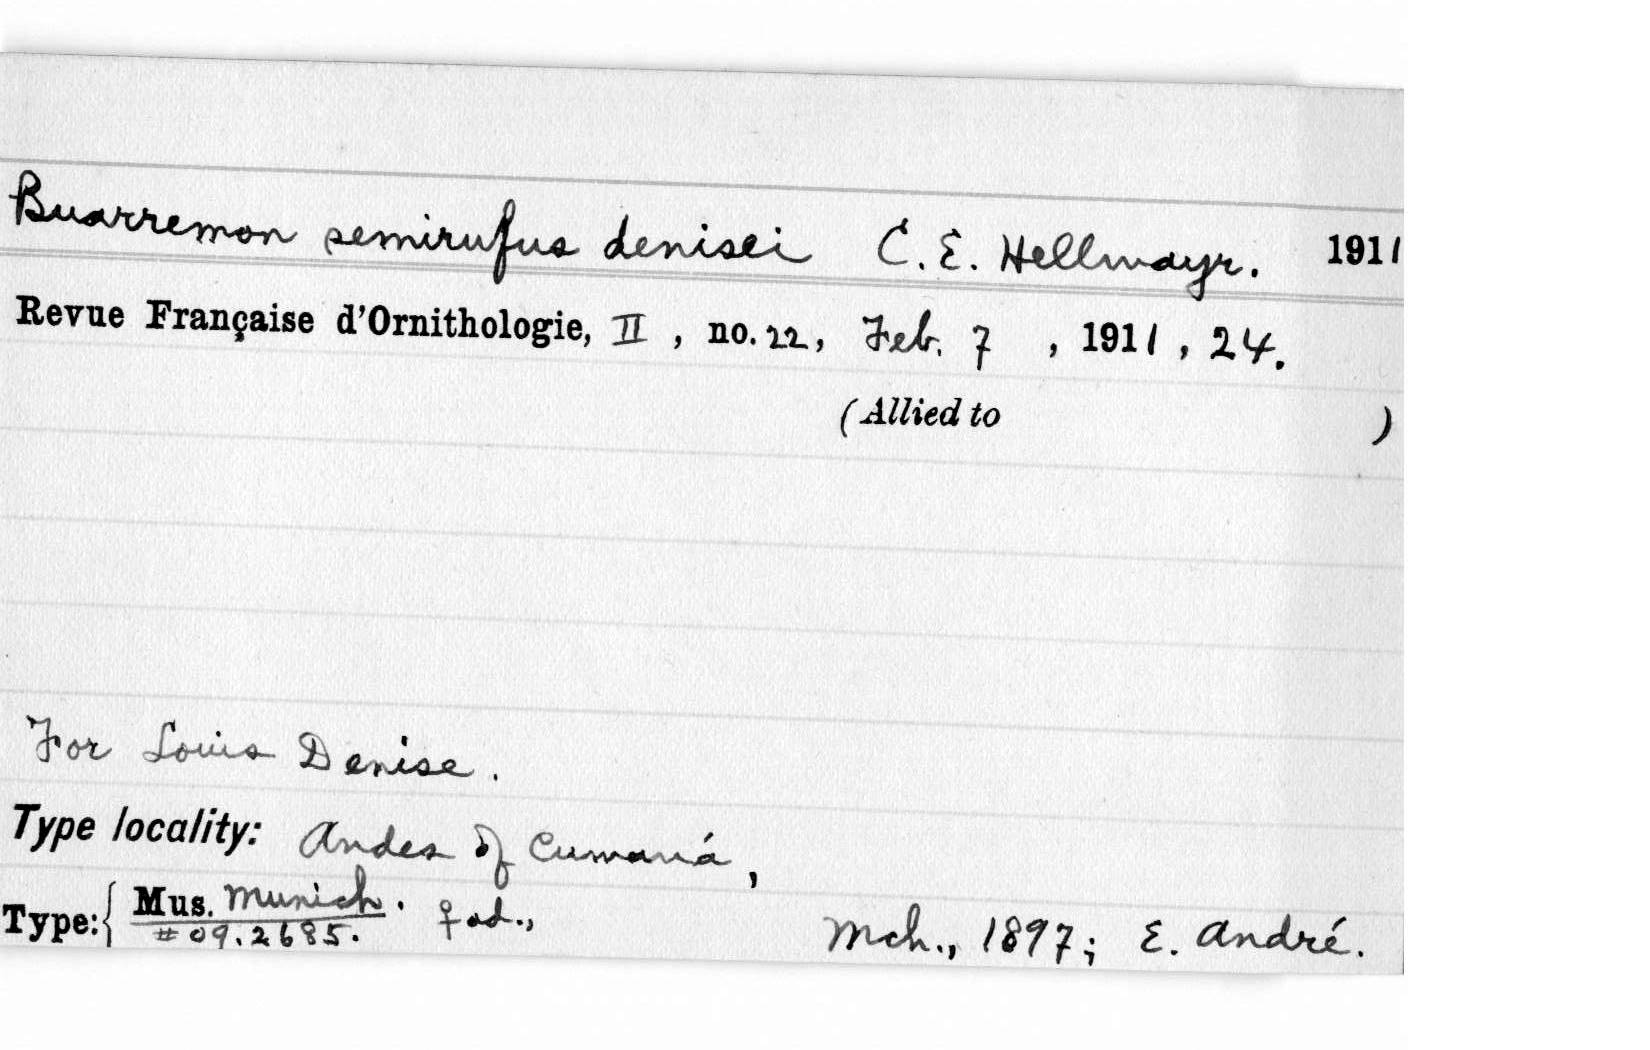 Buarremon semirufus denisei C. E. Hellmayr. 1911
Revue Française d'Ornithologie, II , no. 22, Feb. 7 , 1911 , 24.
(Allied to )
For Louis Denise.
Type locality: Andes of Cumaná,
Type: { Mus. Munich. ♀ ad., Mch., 1897; E. André.
# 09.2685.